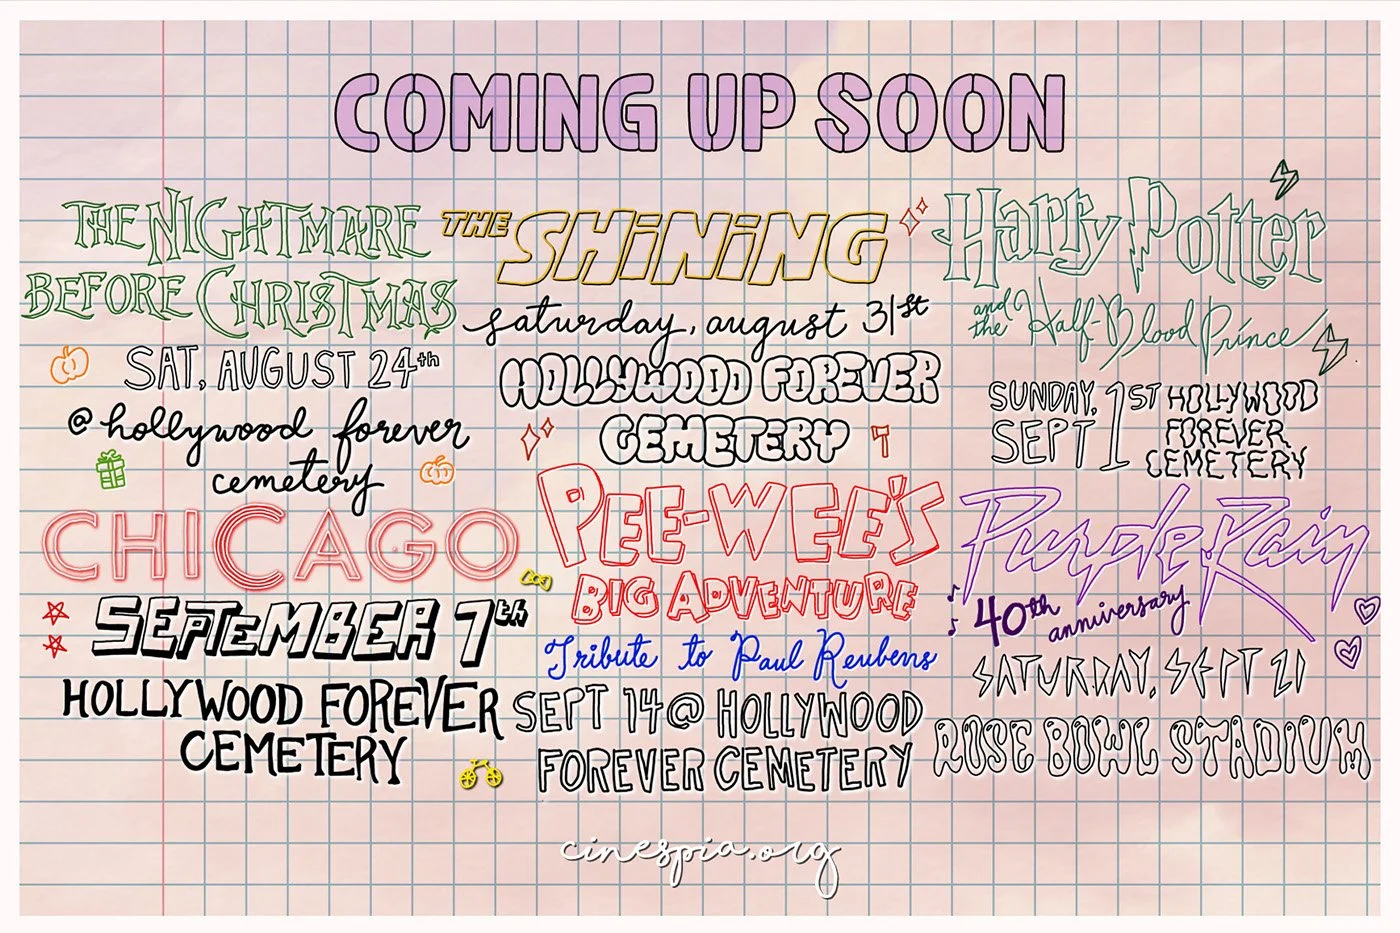 COMING UP SOON
THE NIGHTMARE
BEFORE CHRISTMAS
SAT, AUGUST 24th
@ hollywood forever
cemetery
THE SHiNiNG
saturday, august 31st
HOLLYWOOD FOREVER
CEMETERY
Harry Potter
and the Half-Blood Prince
SUNDAY, SEPT 1ST
HOLLYWOOD
FOREVER
CEMETERY
CHICAGO
SEPTEMBER 7th
HOLLYWOOD FOREVER
CEMETERY
PEE-WEE'S
BIG ADVENTURE
Tribute to Paul Reubens
SEPT 14 @ HOLLYWOOD
FOREVER CEMETERY
Purple Rain
40th anniversary
SATURDAY, SEPT 21
ROSE BOWL STADIUM
cinespia.org